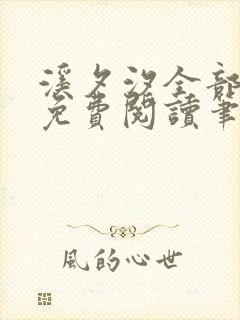 溪夕汐全部
免費閱讀筆
風的心世